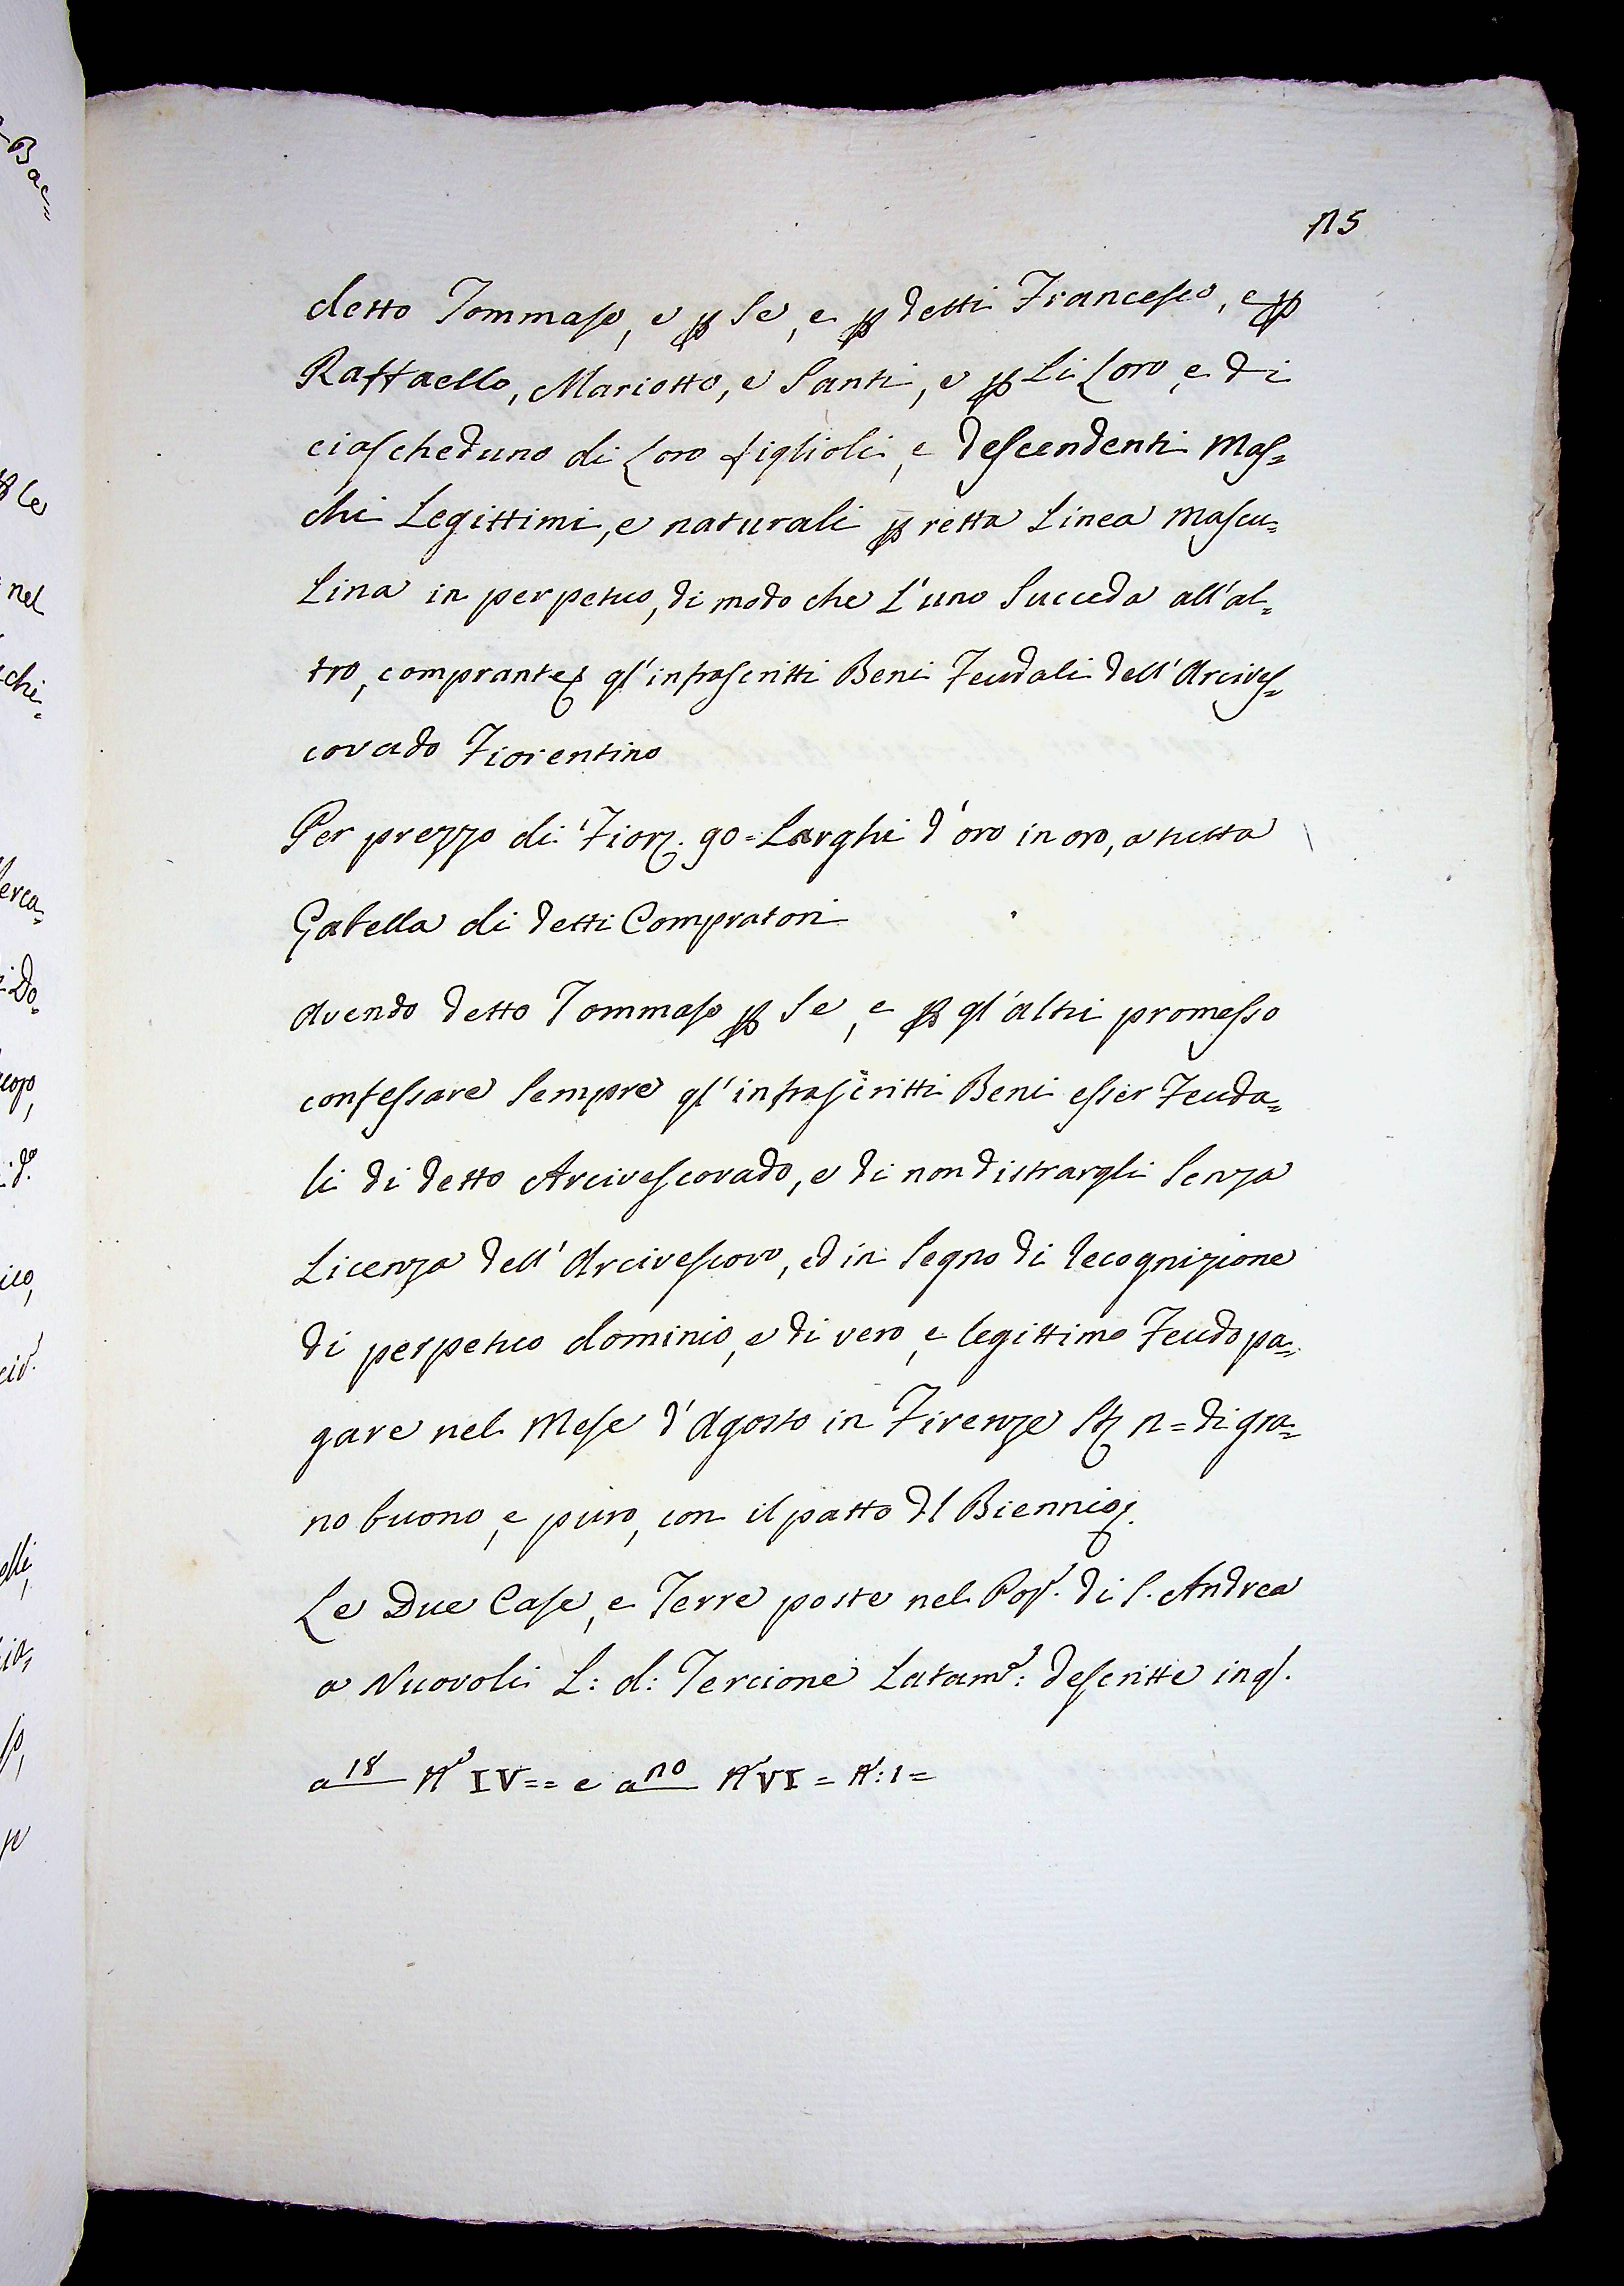 115
detto Tommaso, e p Se, e p detti Francesco, e p
Raffaello, Mariotto, e Santi, e p Li Loro, e di
ciascheduno di Loro figlioli, e descendenti Mas=
chi Legittimi, e naturali p retta Linea Mascu=
Lina in perpetuo, di modo che L'uno Succeda all'al=
tro, comprante gl'infrascritti Beni Feudali dell'Arcives=
covado Fiorentino
Per prezzo di Fior. 90=Larghi d'oro in oro, a tutta
Gabella di detti Compratori
Avendo detto Tommaso p Se, e p gl'altri promesso
confessare Sempre gl'infrascritti Beni esser Feuda=
li di detto Arcivescovado, e di non distrargli Senza
Licenza dell'Arcivescovo, ed in Segno di recognizione
di perpetuo dominio, e di vero, e legittimo Feudo pa=
gare nel Mese d'Agosto in Firenze St 11= di gra=
no buono, e puro, con il patto dl Biennio
Le Due Case, e Terre poste nel Pop. di S. Andrea
a Nuovoli L: d: Tercione Latam.e: descritte in qs.
a 18 N IV== e a 110 N VI= N:1=
Bac=
p le
nel
chi=
erca=
Do=
d.o